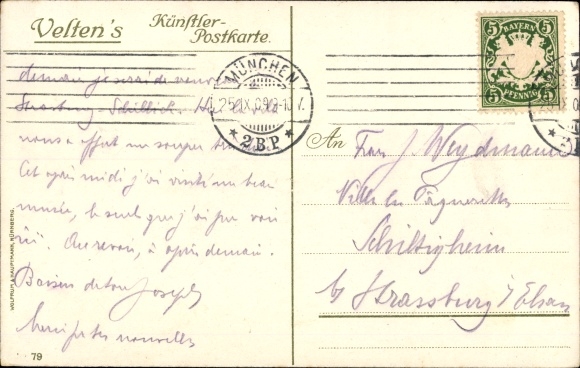 Velten's
Künstler-
Postkarte.
BAYERN
5 5
5 PFENNIG 5
MÜNCHEN
25.IX.09.9-10 V.
* 2.B.P. *
demain je serai de
Strassburg - Schilltick.
nous a offert un souper
Cet après midi j'ai visité un beau
musée, le seul que j'ai pu voir
ici. Au revoir, à après demain.
Baisers de ton Joseph
Merci pr tes nouvelles
An
Frau J. Weydmann
Villa les
Schiltigheim
b/ Strassburg i/ Elsass
WOLFRUM & HAUPTMANN, NÜRNBERG.
79